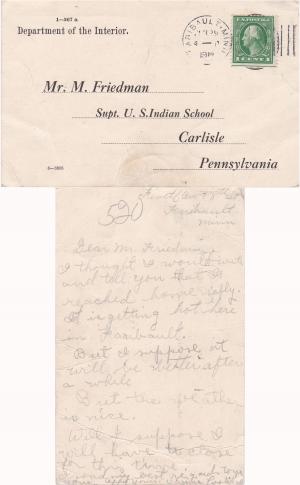 1-567 a
Department of the Interior.
FARIBAULT, MINN
U.S. POSTAGE
1 CENT 1
Mr. M. Friedman
Supt. U. S. Indian School
Carlisle
Pennsylvania
520
Faribault
Minn
Dear Mr. Friedman,
I thought I would write
and tell you that I
reached home safely.
It is getting hot here
in Faribault.
But I suppose it
will be hotter after
a while
But the weather
is nice.
Well I suppose I
will have to close
for this time.